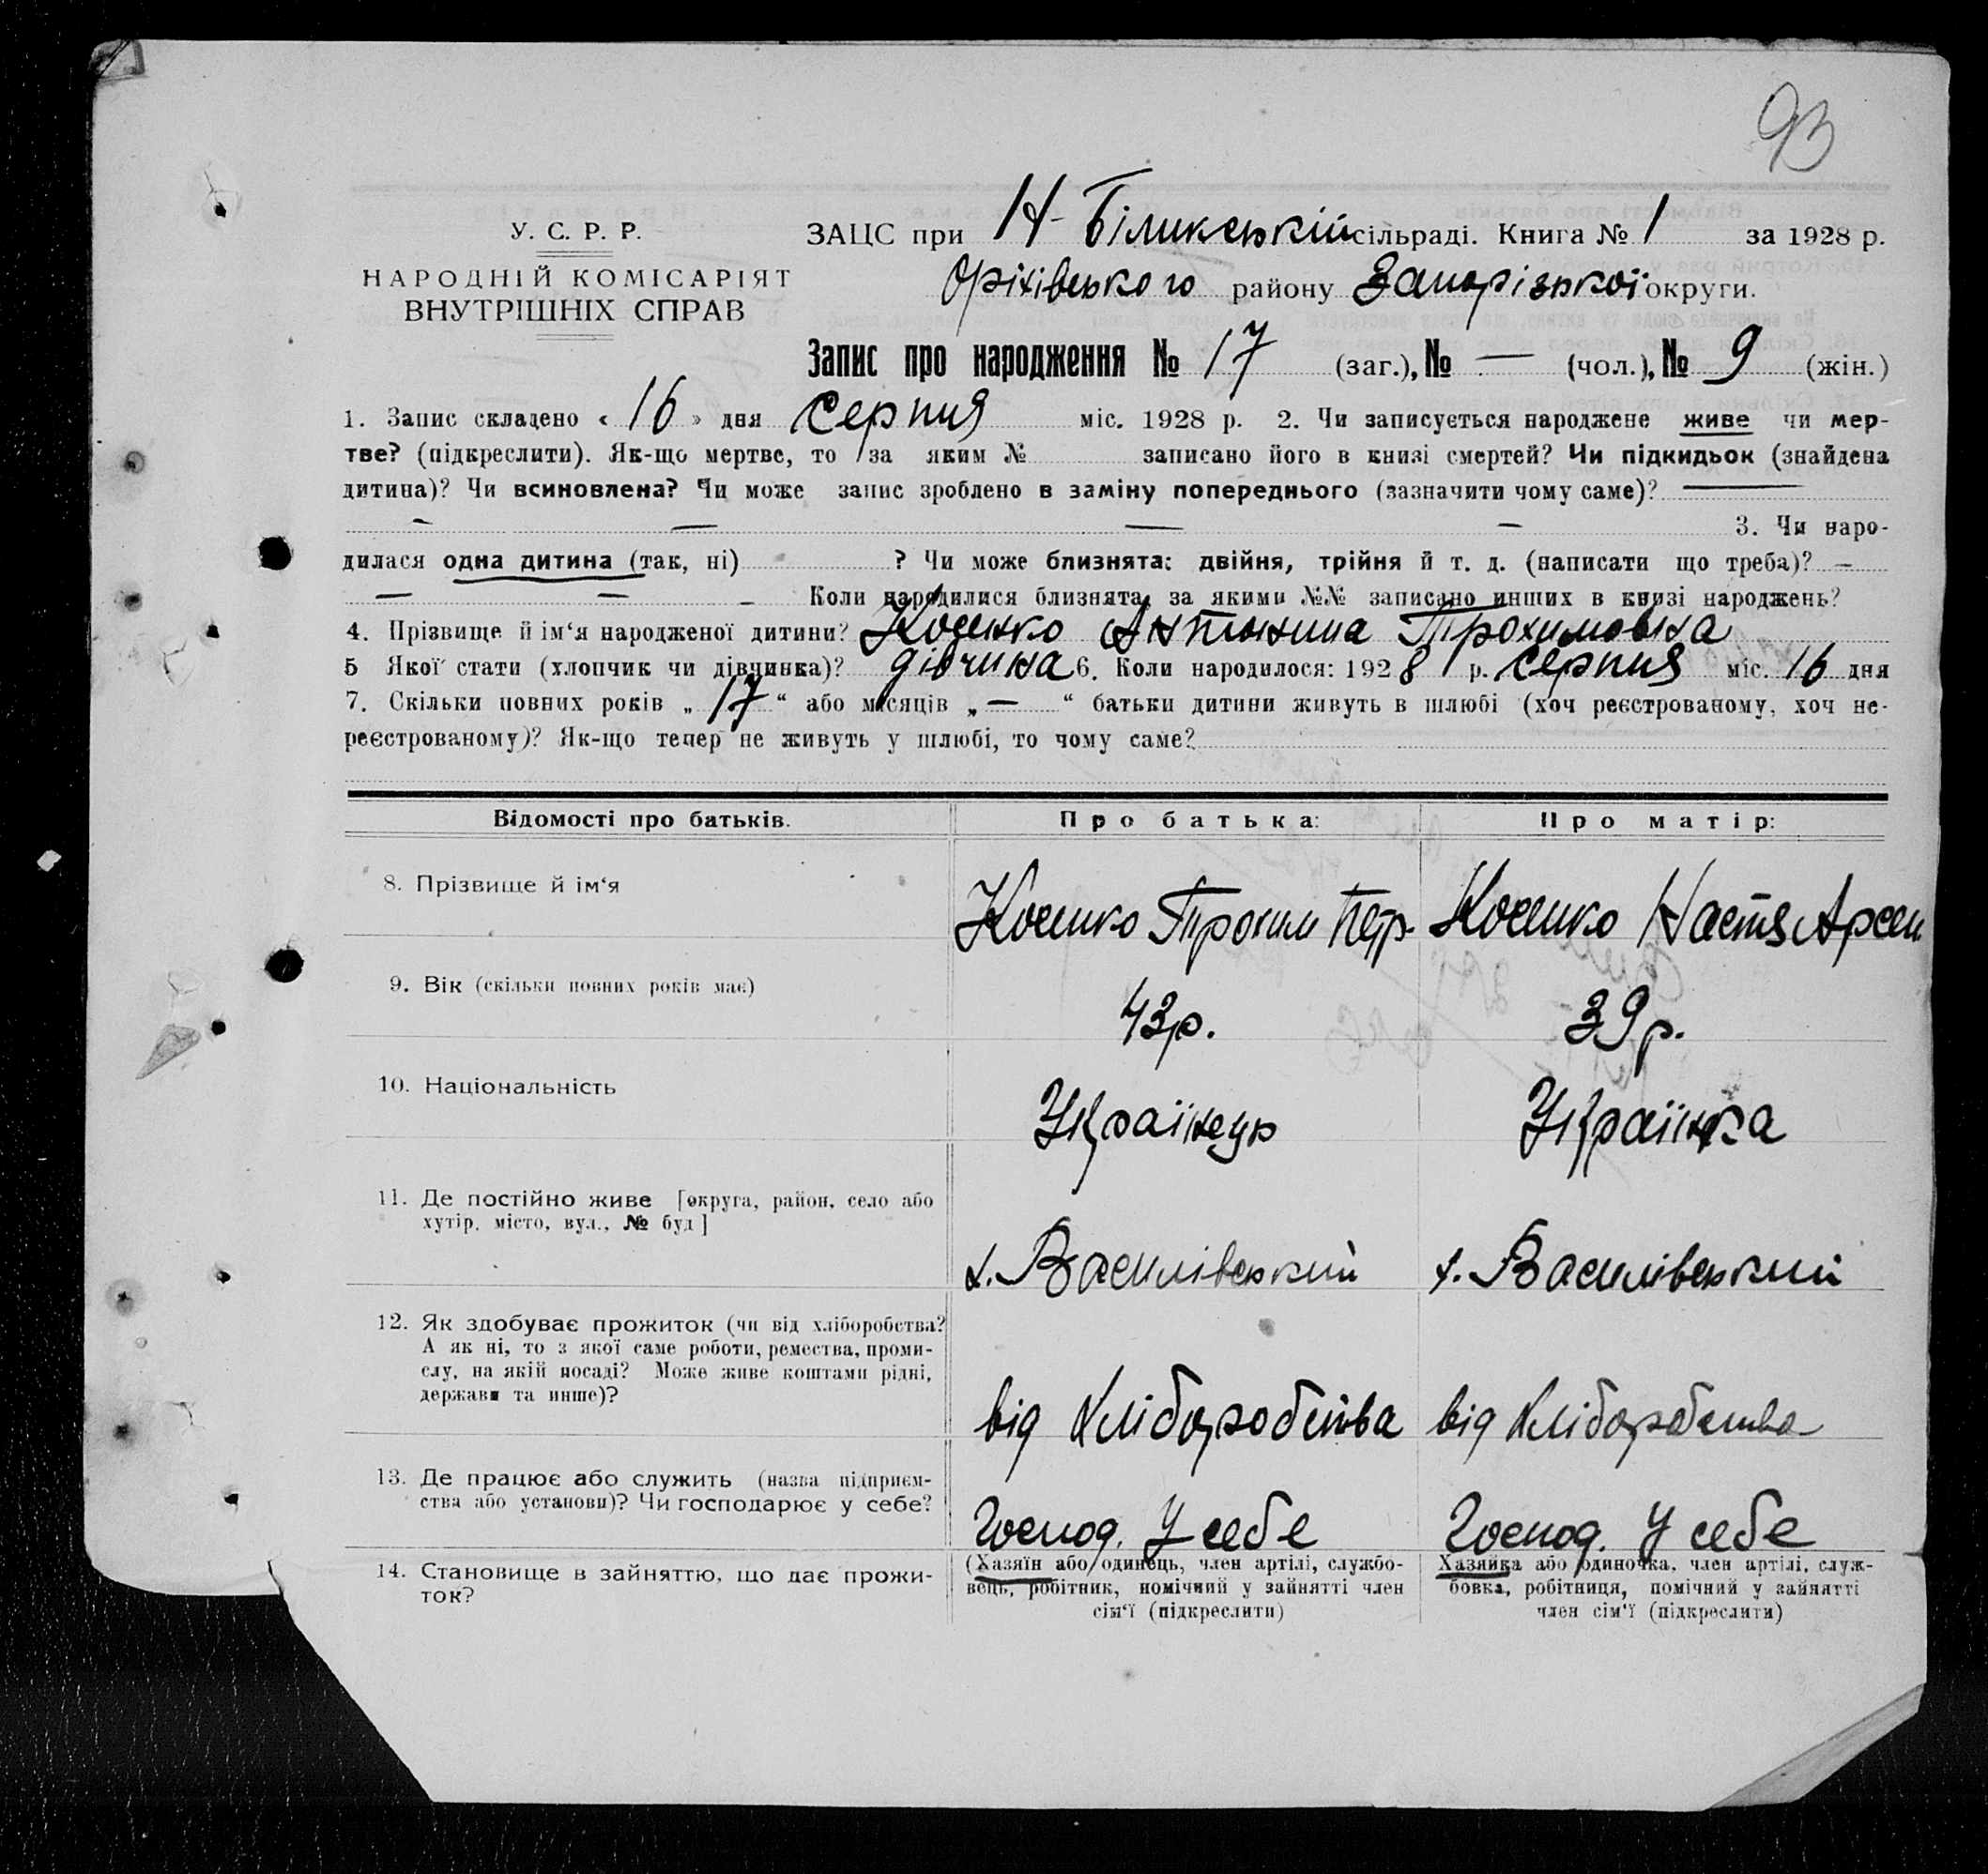 93
У. С. Р. Р.
НАРОДНІЙ КОМІСАРІЯТ
ВНУТРІШНІХ СПРАВ
ЗАЦС при Н-Біликській сільраді. Книга № 1 за 1928 р.
Оріхівського району Запорізької округи.
Запис про народження № 17 (заг.), № — (чол.), № 9 (жін.)
1. Запис складено « 16 » дня серпня міс. 1928 р. 2. Чи записується народжене живе чи мер-
тве? (підкреслити). Як-що мертве, то за яким № записано його в книзі смертей? Чи підкидьок (знайдена
дитина)? Чи всиновлена? Чи може запис зроблено в заміну попереднього (зазначити чому саме)? —
— — — — 3. Чи наро-
дилася одна дитина (так, ні) ? Чи може близнята: двійня, трійня й т. д. (написати що треба)? —
— — — Коли народилися близнята, за якими №№ записано инших в книзі народжень?
4. Прізвище й ім‘я народженої дитини? Косенко Антонина Трохимовна
5 Якої стати (хлопчик чи дівчинка)? дівчина 6. Коли народилося: 1928 р. серпня міс. 16 дня
7. Скільки повних років „ 17 “ або місяців „ — “ батьки дитини живуть в шлюбі (хоч реєстрованому, хоч не-
реєстрованому)? Як-що тепер не живуть у шлюбі, то чому саме?
Відомості про батьків. Про батька: Про матір:
8. Прізвище й ім‘я Косенко Трохим Петр. Косенко Настя Арсен
9. Вік (скільки повних років має) 43 р. 39 р.
10. Національність Українець Українка
11. Де постійно живе [округа, район, село або
хутір, місто, вул., № буд]
х. Василівський х. Василівський
12. Як здобуває прожиток (чи від хліборобства?
А як ні, то з якої саме роботи, ремества, проми-
слу, на якій посаді? Може живе коштами рідні,
держави та инше)?
від хліборобства від хліборобства
13. Де працює або служить (назва підприєм-
ства або установи)? Чи господарює у себе?
Господ. У себе Господ. У себе
14. Становище в зайняттю, що дає прожи-
ток?
(Хазяїн або одинець, член артілі, службо-
вець, робітник, помічний у зайнятті член
сім‘ї (підкреслити)
Хазяйка або одиночка, член артілі, служ-
бовка, робітниця, помічний у зайнятті
член сім‘ї (підкреслити)